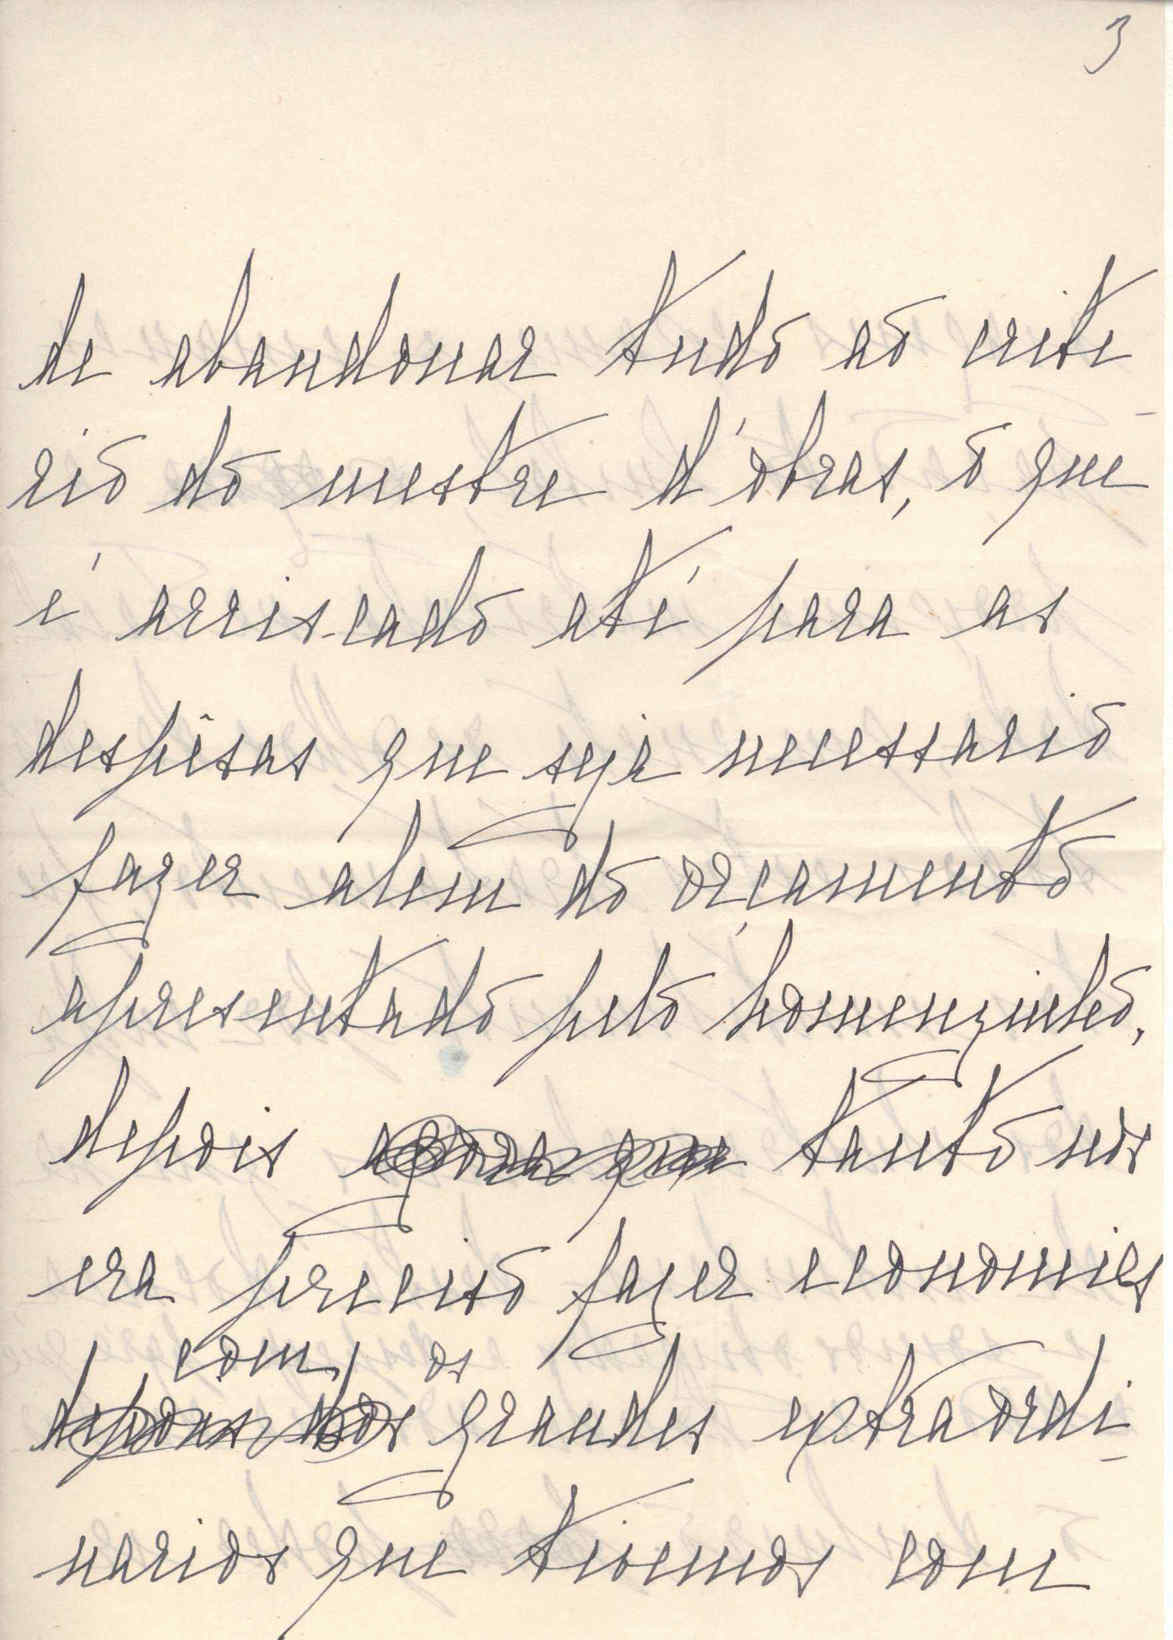 3
de abandonar tudo ao crité-
rio do mestre d'obras, o que
é arriscado até para as
despêsas que seja necessario
fazer alem do orçamento
apresentado pelo homenzinho,
depois agora que tanto nos
era preciso fazer economies
com os
depois dos grandes extraordi-
narios que tivemos com